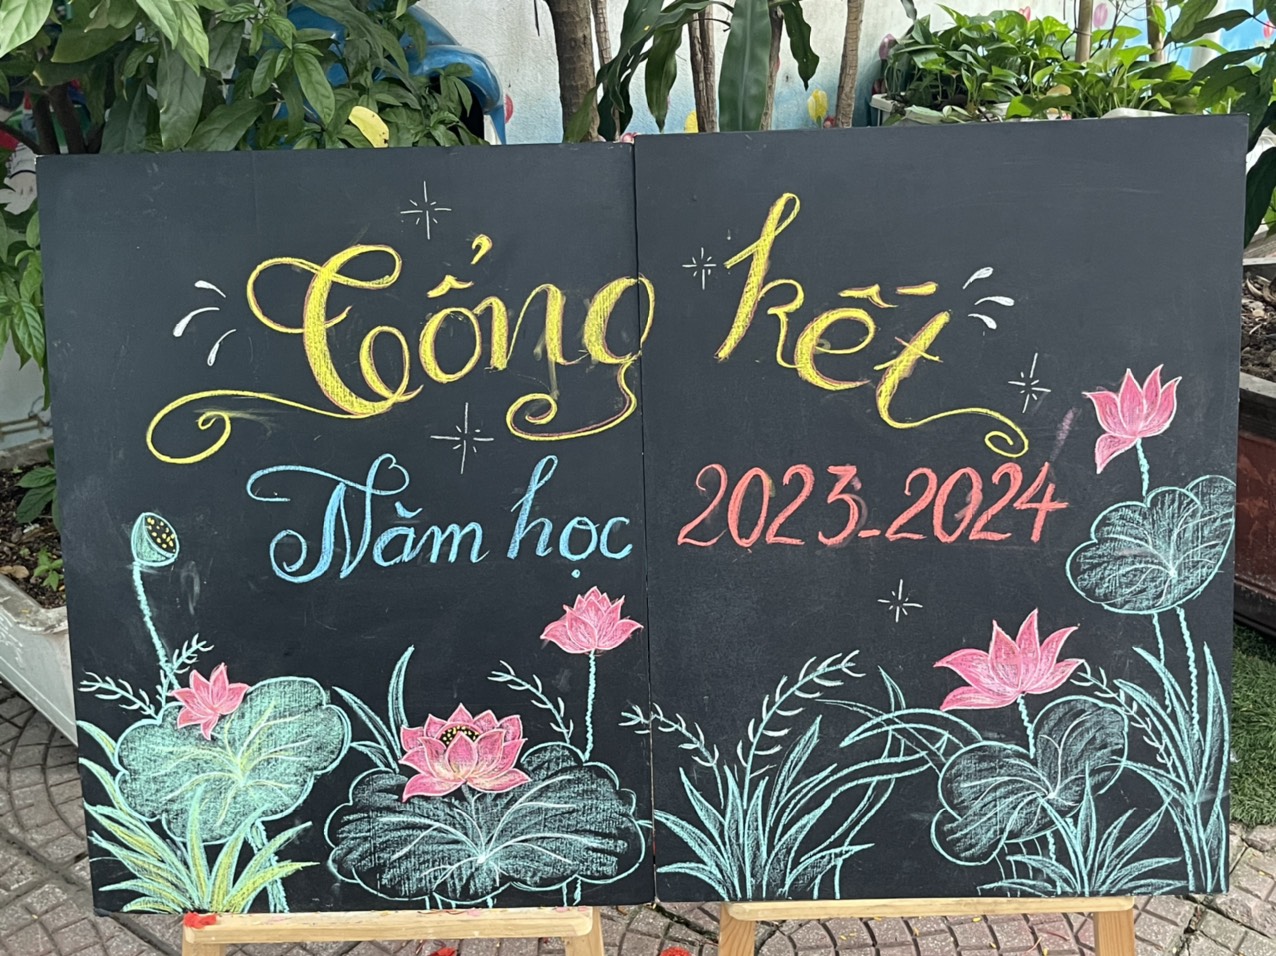 Tổng kết
Năm học 2023-2024